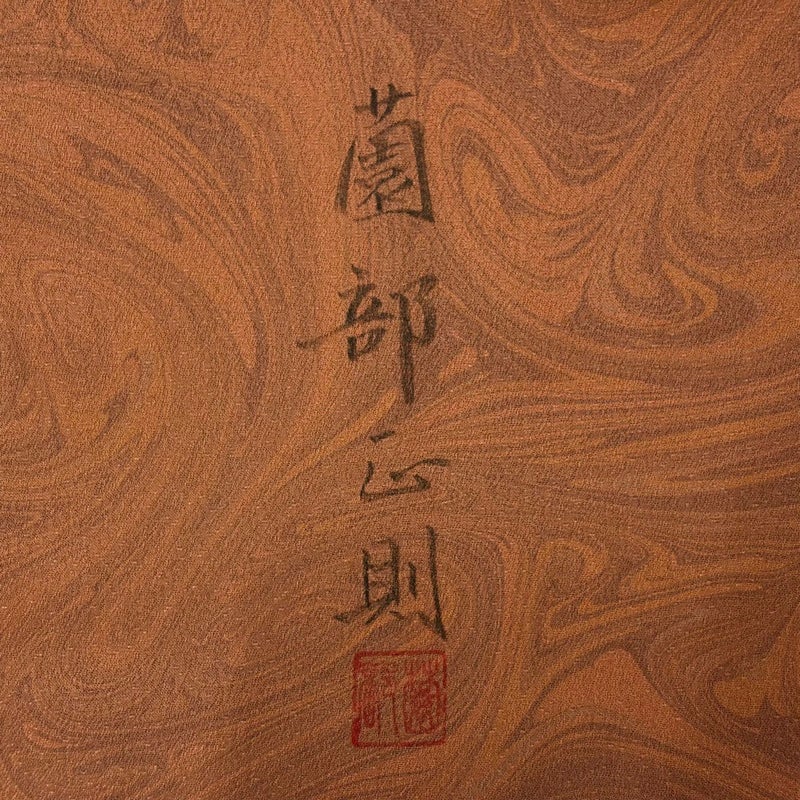 薗部正則